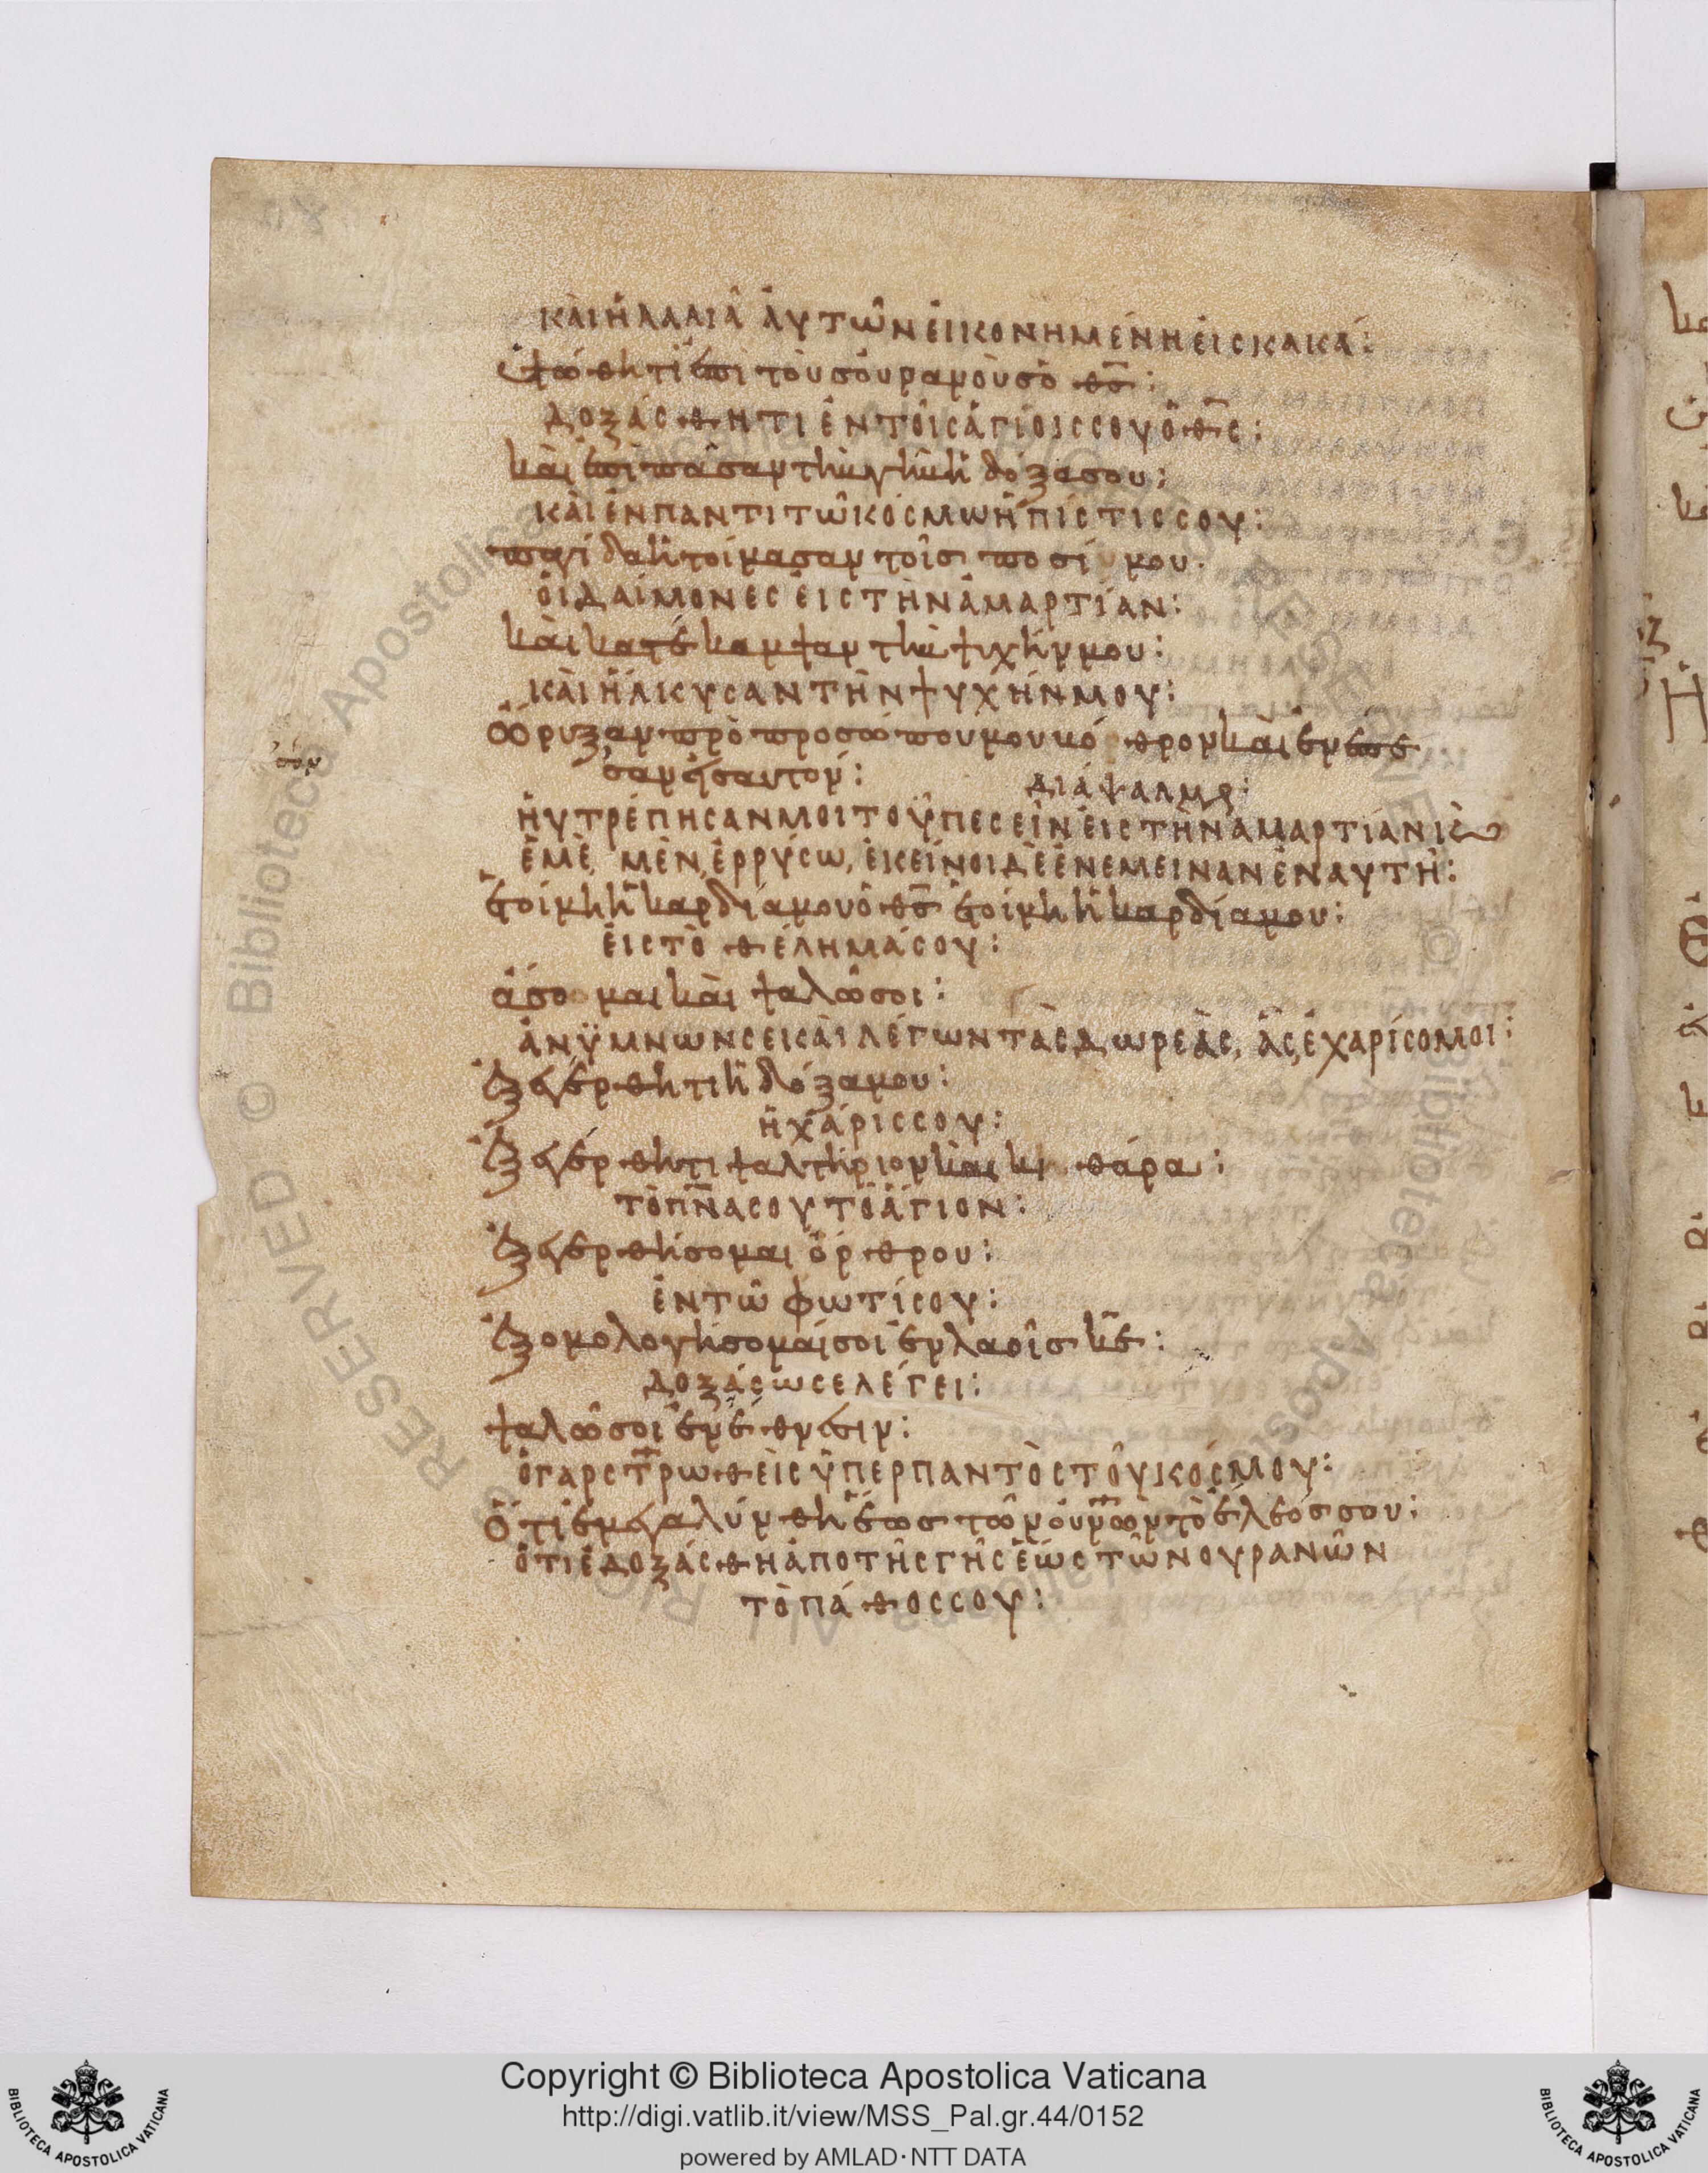 ΚΑΙ Η ΛΑΛΙΑ ΑΥΤΩΝ ΕΙΚΟΝΗΜΕΝΗ ΕΙΣ ΚΑΚΑ:
ὑψώθητι ἐπὶ τοὺς οὐρανοὺς ὁ θ̅ς̅:
ΔΟΞΑΣΘΗΤΙ ΕΝ ΤΟΙΣ ΑΓΙΟΙΣ ΣΟΥ Ο Θ̅Σ̅:
καὶ ἐπὶ πᾶσαν τὴν γῆν ἡ δόξα σου:
ΚΑΙ ΕΝ ΠΑΝΤΙ ΤΩ ΚΟΣΜΩ Η ΠΙΣΤΙΣ ΣΟΥ:
παγίδα ἡτοίμασαν τοῖς ποσί μου.
ΟΙ ΔΑΙΜΟΝΕΣ ΕΙΣ ΤΗΝ ΑΜΑΡΤΙΑΝ:
καὶ κατέκαμψαν τὴν ψιχήν μου:
ΚΑΙ ΗΛΚΥΣΑΝ ΤΗΝ ΨΥΧΗΝ ΜΟΥ:
ὤρυξαν πρὸ προσώπου μου βόθρον καὶ ἐνέπε
σαν εἰς αὐτόν: ΔΙΑΨΑΛΜΑ:
ΗΥΤΡΕΠΗΣΑΝ ΜΟΙ ΤΟΥ ΠΕΣΕΙΝ ΕΙΣ ΤΗΝ ΑΜΑΡΤΙΑΝ
ΕΜΕ ΜΕΝ ΕΡΡΥΣΩ, ΕΚΕΙΝΟΙ ΔΕ ΕΝΕΜΕΙΝΑΝ ΕΝ ΑΥΤΗ:
ἑτοίμη ἡ καρδία μου ὁ θ̅ς̅ ἑτοίμη ἡ καρδία μου:
ΕΙΣ ΤΟ ΘΕΛΗΜΑ ΣΟΥ:
ἄσομαι καὶ ψαλῶ σοι:
ΑΝΥΜΝΩΝ ΣΕ ΚΑΙ ΛΕΓΩΝ ΤΑΣ ΔΩΡΕΑΣ, ΑΣ ΕΧΑΡΙΣΟ ΜΟΙ:
ἐξεγέρθητι ἡ δόξα μου:
Η ΧΑΡΙΣ ΣΟΥ:
ἐξεγέρθητι ψαλτήριον καὶ κιθάρα:
ΤΟ Π̅Ν̅Α ΣΟΥ ΤΟ ΑΓΙΟΝ:
ἐξεγερθήσομαι ὄρθρου:
ΕΝ ΤΩ ΦΩΤΙ ΣΟΥ:
ἐξομολογήσομαί σοι ἐν λαοῖς κ̅ε̅:
ΔΟΞΑΣΩ ΣΕ ΛΕΓΕΙ:
ψαλῶ σοι ἐν ἔθνεσιν:
Ο ΓΑΡ Σ̅Τ̅ΡΩΘΕΙΣ ΥΠΕΡ ΠΑΝΤΟΣ ΤΟΥ ΚΟΣΜΟΥ:
ὅτι ἐμεγαλύνθη ἕως τῶν οὐν̅ῶν τὸ ἔλεός σου:
ΟΤΙ ΕΔΟΞΑΣΘΗ ΑΠΟ ΤΗΣ ΓΗΣ ΕΩΣ ΤΩΝ ΟΥΡΑΝΩΝ
ΤΟ ΠΑΘΟΣ ΣΟΥ:
Copyright © Biblioteca Apostolica Vaticana
http://digi.vatlib.it/view/MSS_Pal.gr.44/0152
powered by AMLAD·NTT DATA
BIBLIOTECA APOSTOLICA VATICANA
BIBLIOTECA APOSTOLICA VATICANA